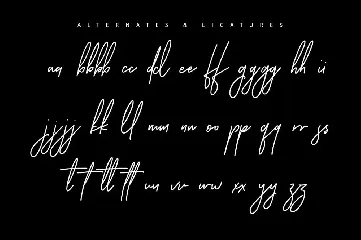 ALTERNATES & LIGATURES
aa bbbb cc dd ee ff gggg hh ii
jjjj kk ll mm nn oo pp qq rr ss
t t tt tt uu vv ww xx yy zz